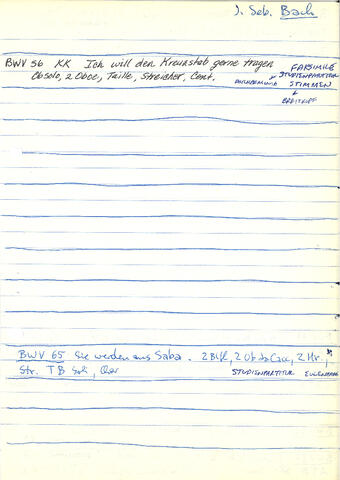 J. Seb. Bach
BWV 56 KK Ich will den Kreuzstab gerne tragen FARSIMILE
Obsolo, 2 Oboe, Taille, Streicher, Cont. STUDIENPARTITUR
STIMMEN
BREITKOPF
BWV 65 Sie werden aus Saba. 2 Blfl, 2 Ob da Cacc, 2 Hr.,
Str. T B Soli, Chor STUDIENPARTITUR EULENBURG